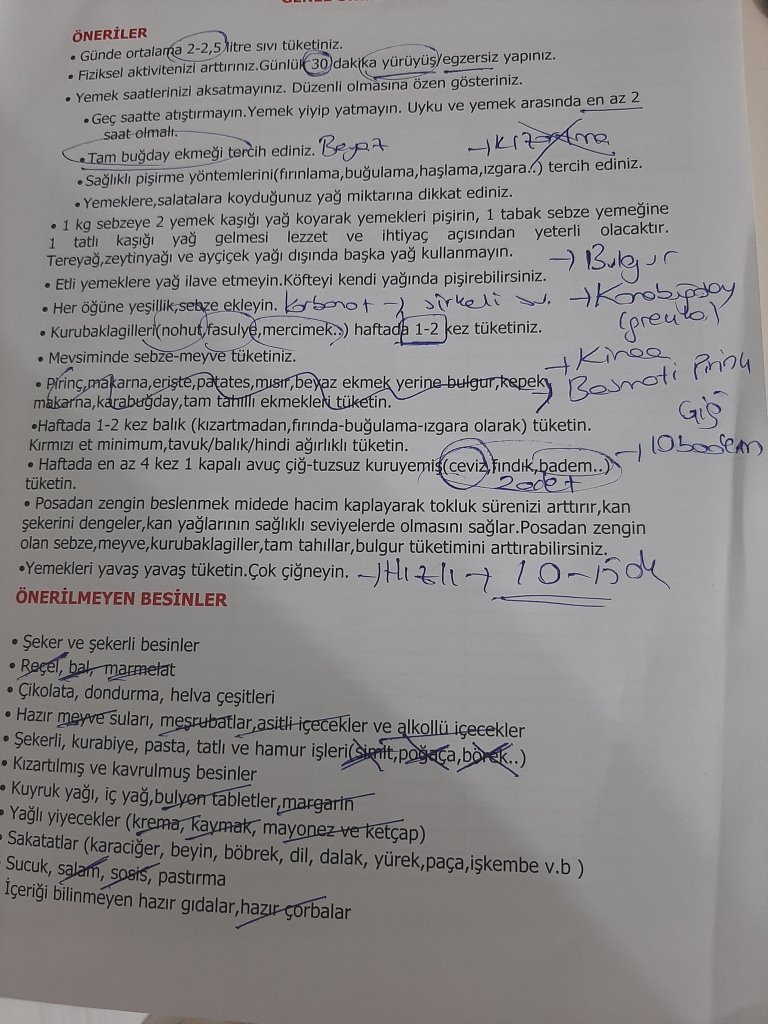 ÖNERİLER
• Günde ortalama 2-2,5 litre sıvı tüketiniz.
• Fiziksel aktivitenizi arttırınız.Günlük 30 dakika yürüyüş/egzersiz yapınız.
• Yemek saatlerinizi aksatmayınız. Düzenli olmasına özen gösteriniz.
• Geç saatte atıştırmayın.Yemek yiyip yatmayın. Uyku ve yemek arasında en az 2
saat olmalı.
• Tam buğday ekmeği tercih ediniz. Beyaz → Kızartma
• Sağlıklı pişirme yöntemlerini(fırınlama,buğulama,haşlama,ızgara..) tercih ediniz.
• Yemeklere,salatalara koyduğunuz yağ miktarına dikkat ediniz.
• 1 kg sebzeye 2 yemek kaşığı yağ koyarak yemekleri pişirin, 1 tabak sebze yemeğine
1 tatlı kaşığı yağ gelmesi lezzet ve ihtiyaç açısından yeterli olacaktır.
Tereyağ,zeytinyağı ve ayçiçek yağı dışında başka yağ kullanmayın.
→ Bulgur
• Etli yemeklere yağ ilave etmeyin.Köfteyi kendi yağında pişirebilirsiniz.
• Her öğüne yeşillik,sebze ekleyin. Karbonat → sirkeli su. → Karabuğday
• Kurubaklagilleri(nohut,fasulye,mercimek..) haftada 1-2 kez tüketiniz.
• Mevsiminde sebze-meyve tüketiniz.
→ Kinoa
• Pirinç,makarna,erişte,patates,mısır,beyaz ekmek yerine bulgur,kepek → Basmati Pirinç
makarna,karabuğday,tam tahıllı ekmekleri tüketin.
Çiğ
•Haftada 1-2 kez balık (kızartmadan,fırında-buğulama-ızgara olarak) tüketin.
Kırmızı et minimum,tavuk/balık/hindi ağırlıklı tüketin.
• Haftada en az 4 kez 1 kapalı avuç çiğ-tuzsuz kuruyemiş(ceviz,fındık,badem..) → 10 badem
tüketin. 2 adet
• Posadan zengin beslenmek midede hacim kaplayarak tokluk sürenizi arttırır,kan
şekerini dengeler,kan yağlarının sağlıklı seviyelerde olmasını sağlar.Posadan zengin
olan sebze,meyve,kurubaklagiller,tam tahıllar,bulgur tüketimini arttırabilirsiniz.
•Yemekleri yavaş yavaş tüketin.Çok çiğneyin. → Hızlı → 10-15 dk
ÖNERİLMEYEN BESİNLER
• Şeker ve şekerli besinler
• Reçel, bal, marmelat
• Çikolata, dondurma, helva çeşitleri
• Hazır meyve suları, meşrubatlar,asitli içecekler ve alkollü içecekler
• Şekerli, kurabiye, pasta, tatlı ve hamur işleri(simit,poğaça,börek..)
• Kızartılmış ve kavrulmuş besinler
• Kuyruk yağı, iç yağ,bulyon tabletler,margarin
• Yağlı yiyecekler (krema, kaymak, mayonez ve ketçap)
• Sakatatlar (karaciğer, beyin, böbrek, dil, dalak, yürek,paça,işkembe v.b )
• Sucuk, salam, sosis, pastırma
İçeriği bilinmeyen hazır gıdalar,hazır çorbalar